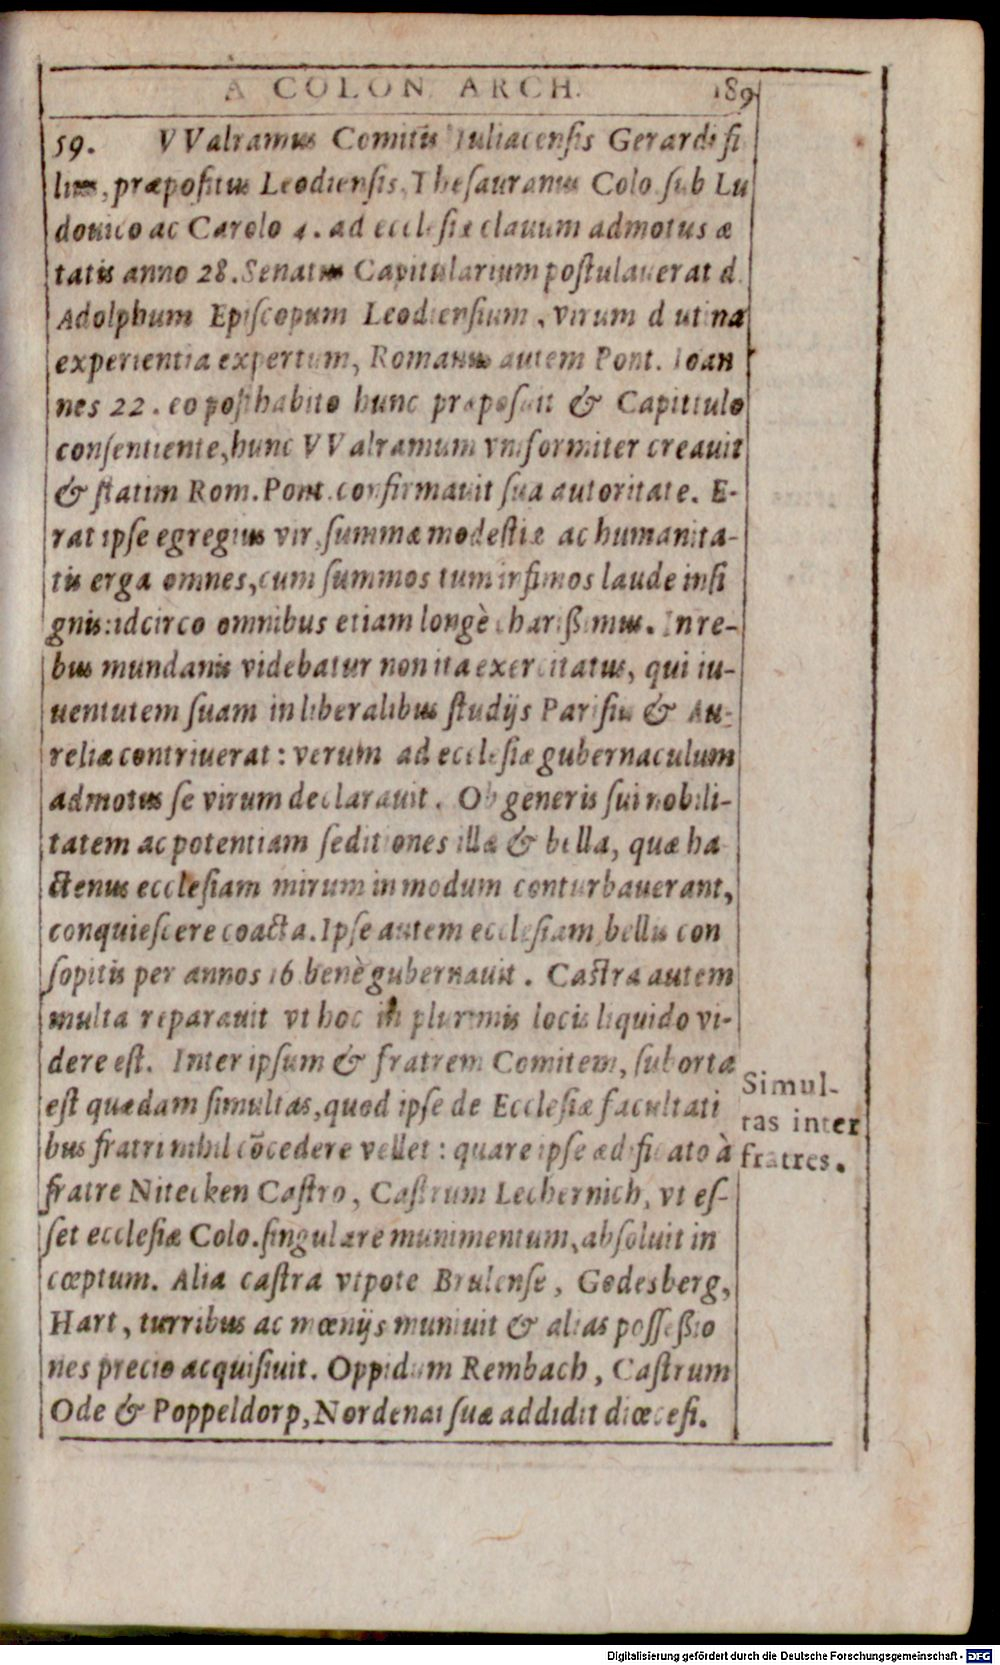 A COLON. ARCH. 189
59. VValramus Comitis Iuliacensis Gerardi fi
lius, præpositus Leodiensis, Thesaurarius Colo. sub Lu
douico ac Carolo 4. ad ecclesiæ clauum admotus æ
tatis anno 28. Senatus Capitularium postulauerat d.
Adolphum Episcopum Leodiensium, virum diutina
experientia expertum, Romanus autem Pont. Ioan
nes 22. eo posthabito hunc præposuit & Capittulo
consentiente, hunc VValramum vniformiter creauit
& statim Rom. Pont. confirmauit sua autoritate. E-
rat ipse egregius vir, summæ modestiæ ac humanita-
tis erga omnes, cum summos tum infimos laude insi
gnis: idcirco omnibus etiam longè charißimus. In re-
bus mundanis videbatur non ita exercitatus, qui iu-
uentutem suam in liberalibus studijs Parisiis & Au-
reliæ contriuerat: verum ad ecclesiæ gubernaculum
admotus se virum declarauit. Ob generis sui nobili-
tatem ac potentiam seditiones illæ & bella, quæ ha
ctenus ecclesiam mirum in modum conturbauerant,
conquiescere coacta. Ipse autem ecclesiam bellis con
sopitis per annos 16 benè gubernauit. Castra autem
multa reparauit vt hoc in plurimis locis liquido vi-
dere est. Inter ipsum & fratrem Comitem, suborta
est quædam simultas, quod ipse de Ecclesiæ facultati
bus fratri nihil cõcedere vellet: quare ipse ædificato à
fratre Nitecken Castro, Castrum Lechernich, vt es-
set ecclesiæ Colo. singulare munimentum, absoluit in
cœptum. Alia castra vtpote Brulense, Godesberg,
Hart, turribus ac mœnijs muniuit & alias posseßio
nes precio acquisiuit. Oppidum Rembach, Castrum
Ode & Poppeldorp, Nordenai suæ addidit diœcesi.
Simul-
tas inter
fratres.
Digitalisierung gefördert durch die Deutsche Forschungsgemeinschaft - DFG